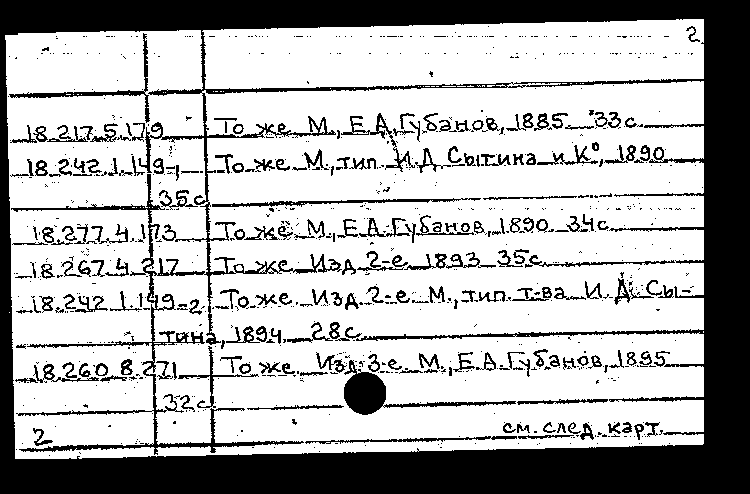 2
18.217.5.179 То же М., Е.А.Губанов, 1885 33с.
18.242.1.149-1 То же М., тип. И.Д Сытина и К°, 1890
35с
18.277.4.173 То же. М., Е.А.Губанов, 1890 34с.
18.267.4.217 То же. Изд 2-е 1893 35с.
18.242.1.149-2 То же. Изд 2-е М., тип. т-ва И.Д. Сы-
тина, 1894 28с.
18.260.8.271 То же. Изд. 3-е. М., Е.А.Губанов, 1895
32с
2 см. след. карт.